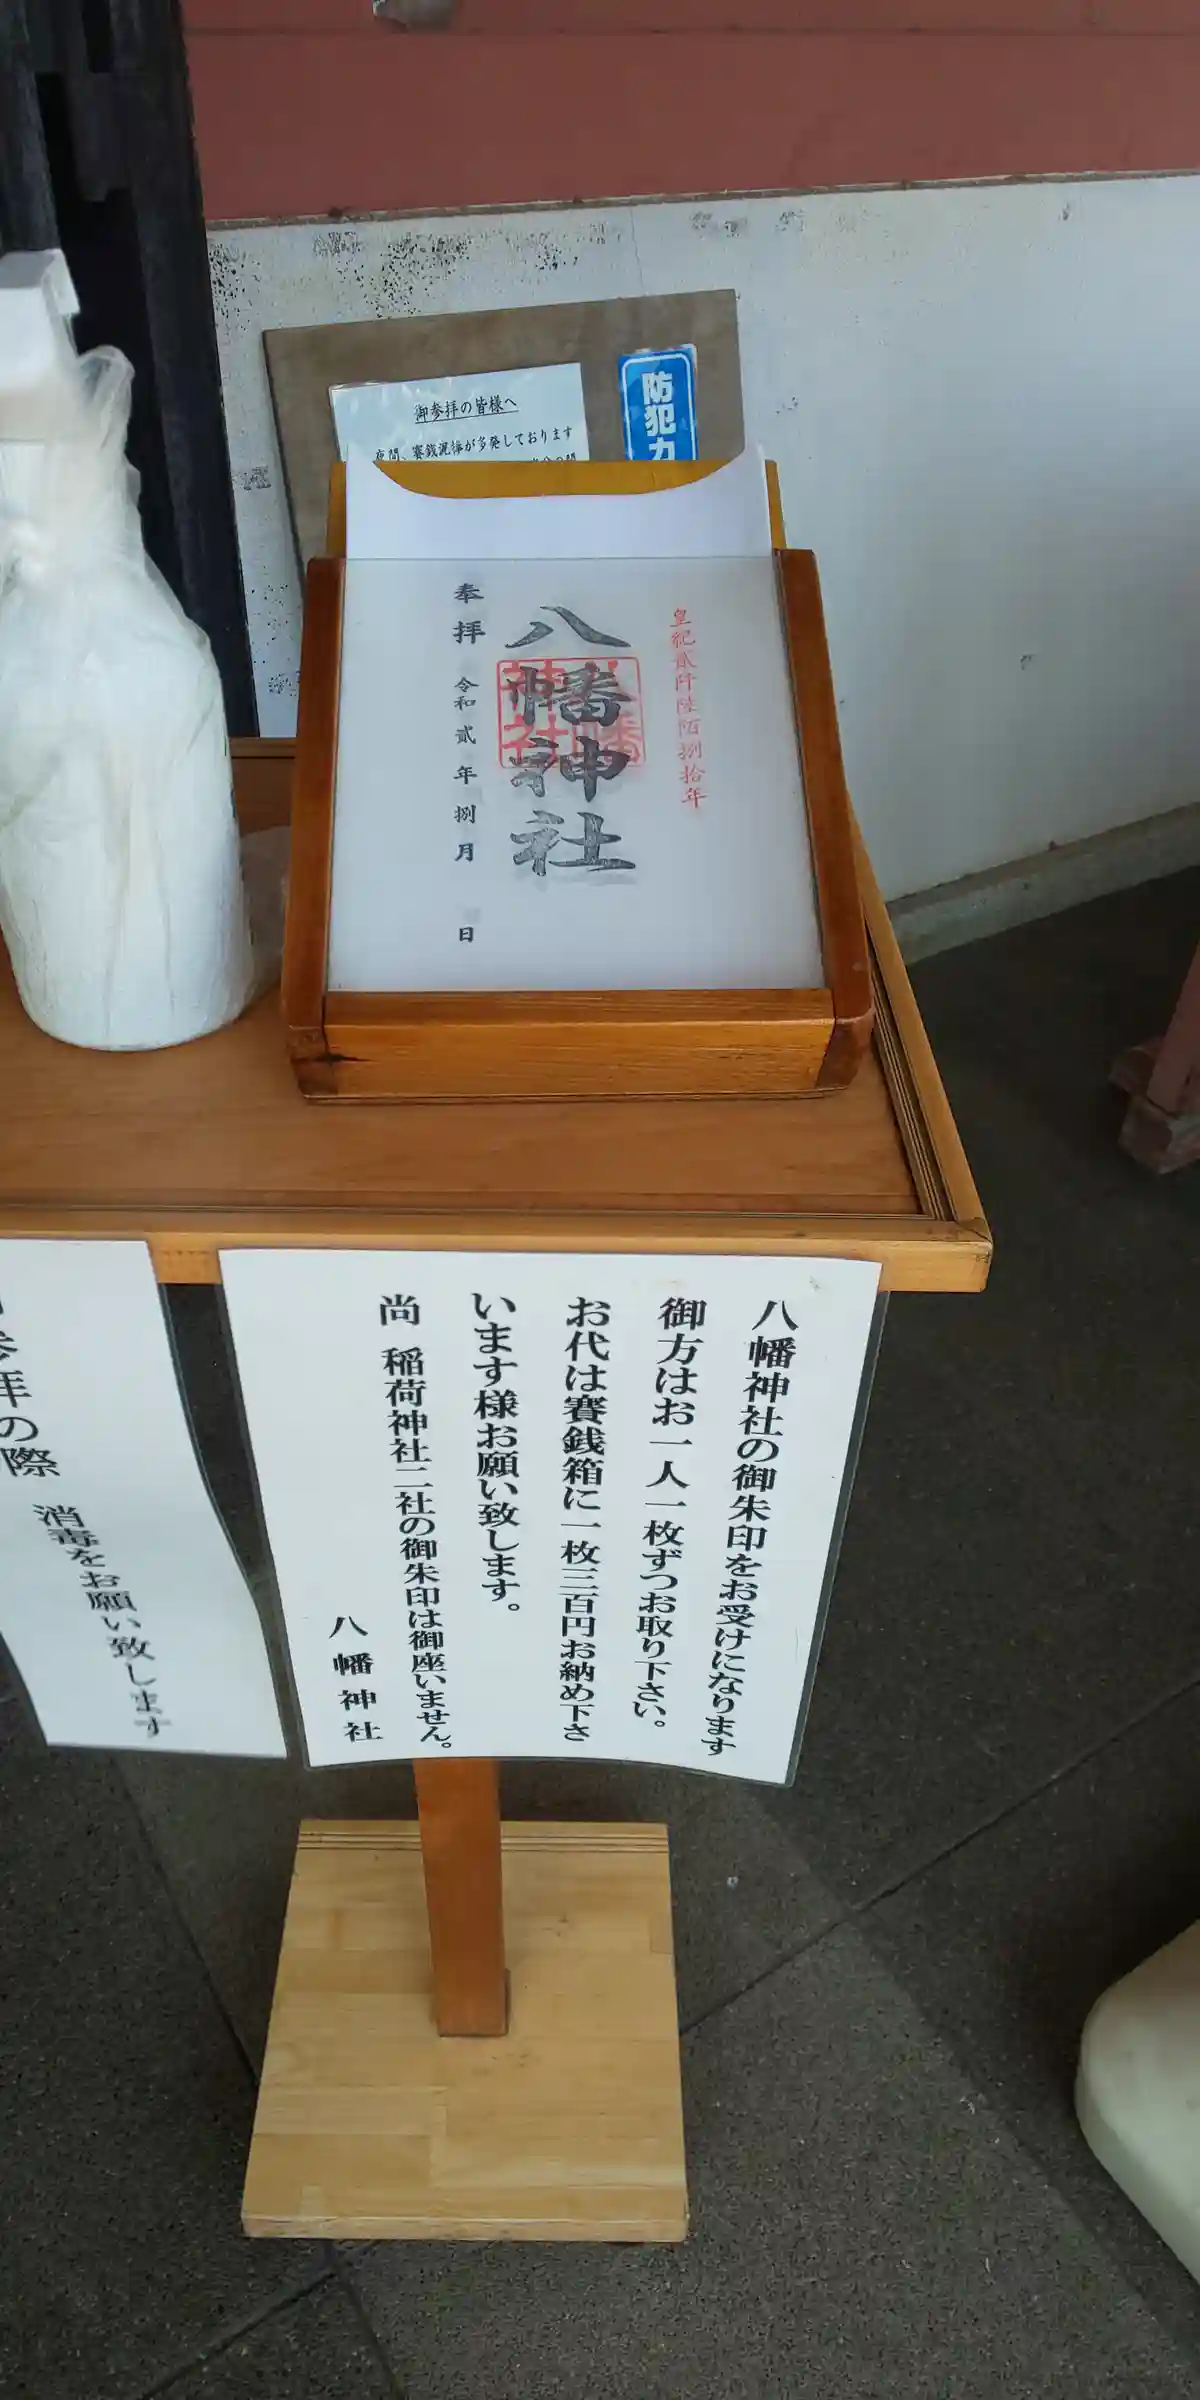 御参拝の皆様へ
夜間、賽銭泥棒が多発しております
防犯カ
皇紀貳阡陸陌捌拾年
八幡神社
奉拝 令和貳年捌月 日
八幡神社の御朱印をお受けになります
御方はお一人一枚ずつお取り下さい。
お代は賽銭箱に一枚三百円お納め下さ
います様お願い致します。
尚 稲荷神社二社の御朱印は御座いません。
八幡神社
参拝の際
消毒をお願い致します